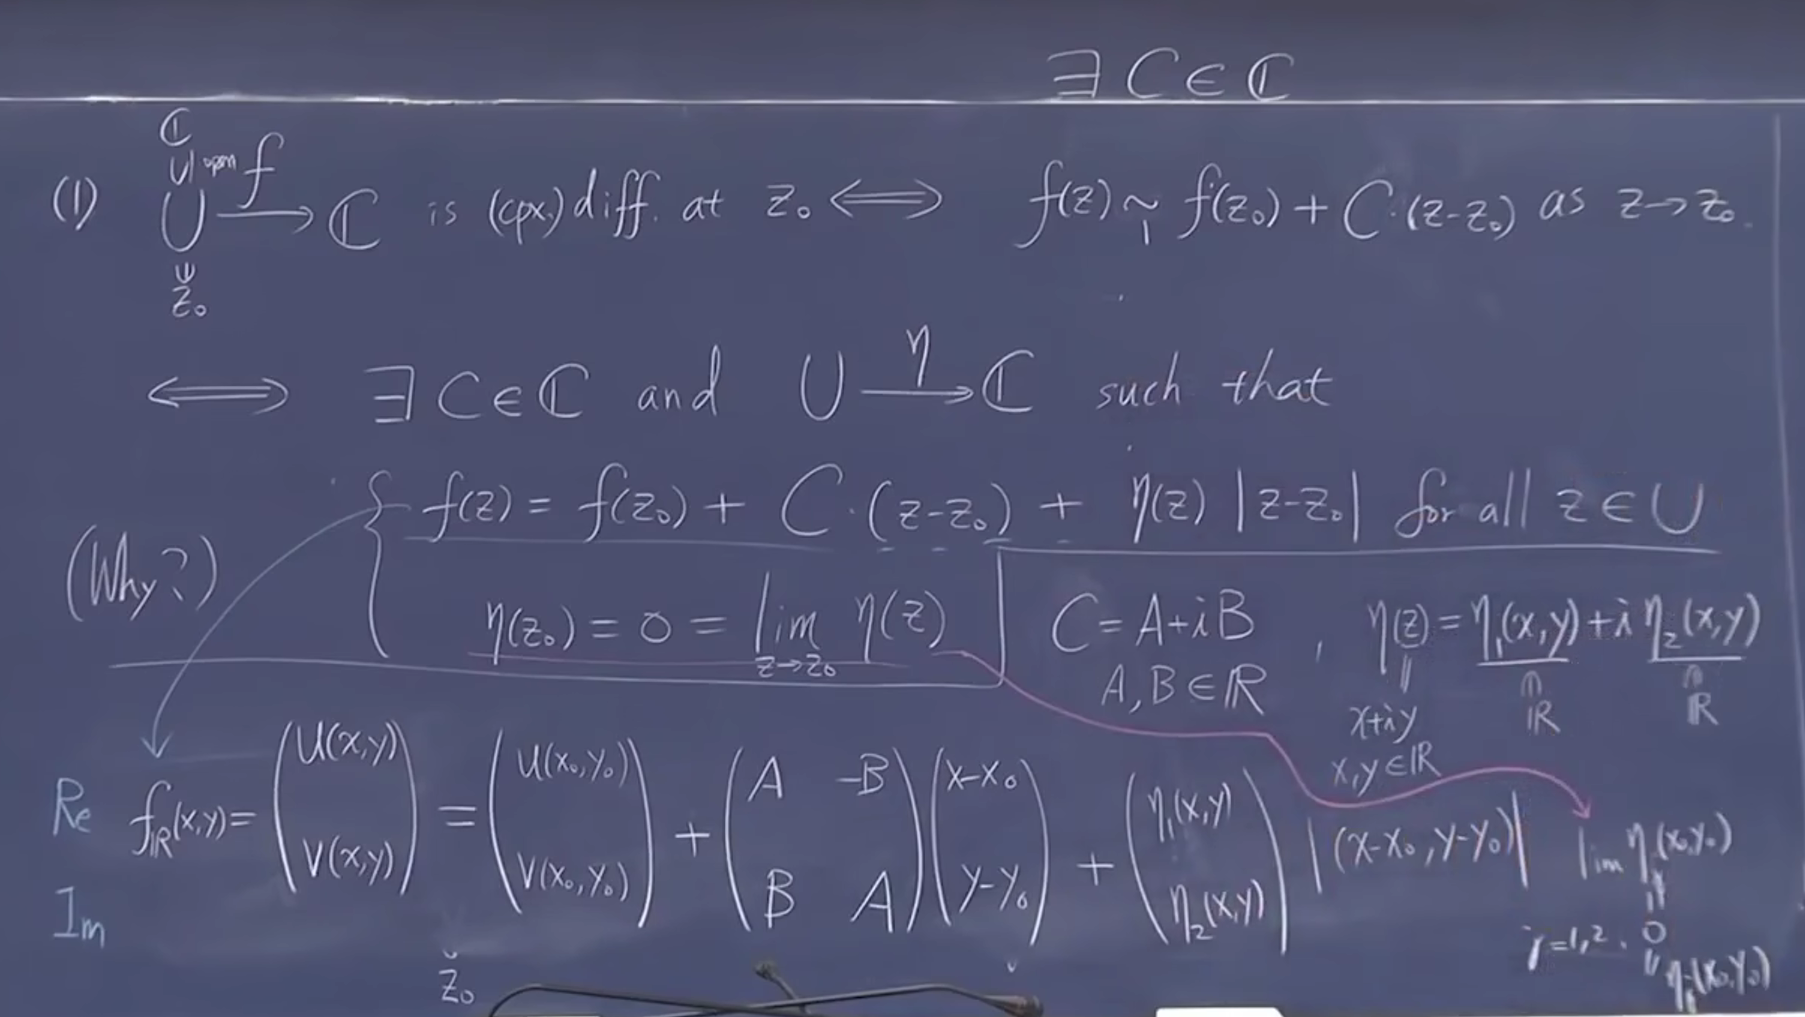 ∃ C ∈ ℂ
(1) ℂ ⊃ open U ∋ z₀, U —f→ ℂ is (cpx.) diff. at z₀ ⟺ f(z) ~₁ f(z₀) + C·(z-z₀) as z→z₀.
⟺ ∃ C ∈ ℂ and U —η→ ℂ such that
{ f(z) = f(z₀) + C·(z-z₀) + η(z) |z-z₀| for all z ∈ U
(Why?) η(z₀) = 0 = lim_{z→z₀} η(z)
C = A+iB, η(z) = η₁(x,y) + i η₂(x,y)
A, B ∈ ℝ
x+iy ∈ ℝ ∈ ℝ
x,y ∈ ℝ
Re Im f_ℝ(x,y) = (u(x,y) ; v(x,y)) = (u(x₀,y₀) ; v(x₀,y₀)) + (A -B ; B A)(x-x₀ ; y-y₀) + (η₁(x,y) ; η₂(x,y)) |(x-x₀, y-y₀)|
lim η_j(x₀,y₀)
=
j=1,2. 0
=
η_j(x₀,y₀)
z₀